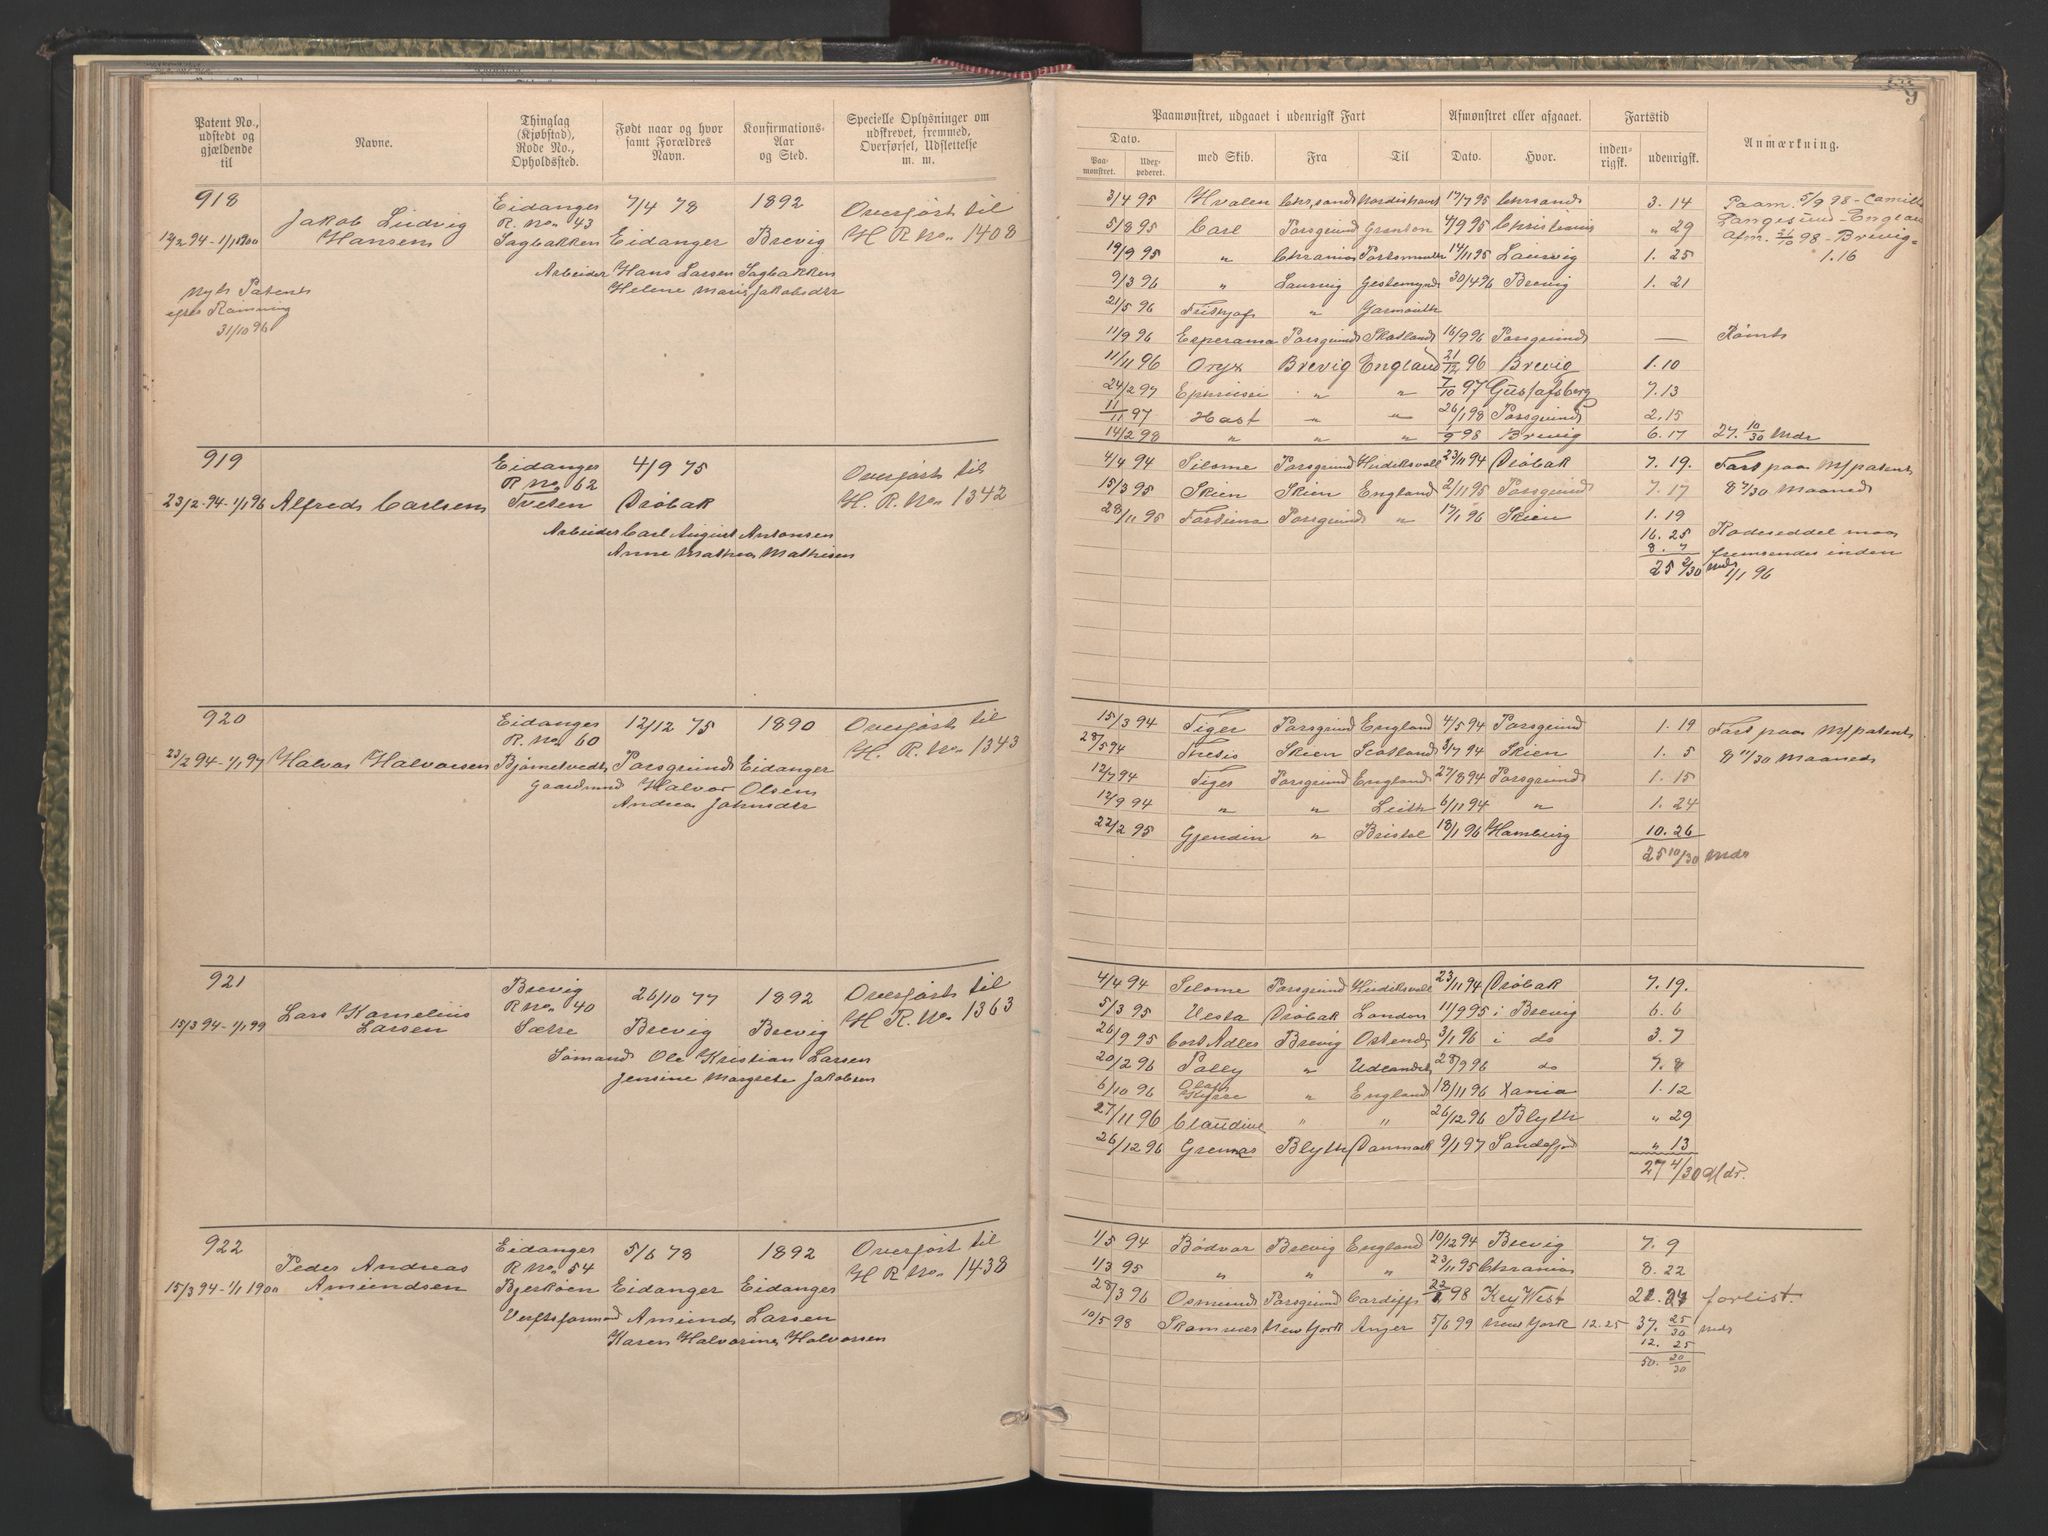 Patent No., udstedt og gjældende til
Navne.
Thinglag (Kjøbstad), Rode No., Opholdssted.
Født naar og hvor samt Forældres Navn.
Konfirmations-Aar og Sted.
Specielle Oplysninger om udskrevet, fremmed, Overførsel, Udslettelse m. m.
918
Jakob Ludvig
Hansen
12/2 94 - 1/1 1900
Nyt Patent
efter Rømning
31/10 96
Eidanger
R. No. 43
Sagbakken
7/4 78
Eidanger
1892
Brevig
Overført til
H R No. 1408
Arbeider Hans Larsen Sagbakken
Helene Marie Jakobsdtr
919
23/2 94 - 1/1 96
Alfred Carlsen
Eidanger
R No. 62
Tveten
4/9 75
Drøbak
Overført til
H. R. No. 1342
Arbeider Carl August Antonsen
Anne Mathea Mathisen
920
23/2 94 - 1/1 97
Halvor Halvorsen
Eidanger
R. No. 60
Bjørntvedt
12/12 75
Porsgrund
1890
Eidanger
Overført til
H. R. No. 1343
Gaardmand Halvor Olsen
Andrea Johnsdtr
921
15/3 94 - 1/1 99
Lars Kornelius
Larsen
Brevig
R No. 40
Sætre
26/10 77
Brevig
1892
Brevig
Overført til
H R. No. 1363
Sømand Ole Kristian Larsen
Jensine Margrete Jakobsen
922
15/3 94 - 1/1 1900
Peder Andreas
Amundsen
Eidanger
R No. 54
Bjerkøen
5/6 78
Eidanger
1892
Eidanger
Overført til
H R No. 1438
Verftsformand Amund Larsen
Karen Halvorine Halvorsen
9
Paamønstret, udgaaet i udenrigsk Fart
Afmønstret eller afgaaet.
Fartstid
Anmærkning.
Dato.
Paamønstret. Udexpederet.
med Skib. Fra Til Dato. Hvor. indenrigsk. udenrigsk.
3/4 95 Hvalen Chr.sand Nordishavet 17/7 95 Chrsand 3. 14 Paam. 5/9 98 - Camilla
5/8 95 Carl Porsgrund Granton 4/9 95 Christiania " 29 Langesund - England
Afm. 21/10 98 - Brevig =
19/9 95 " Chrania Portsmouth 14/11 95 Laurvig 1. 25 1.16
9/3 96 " Laurvig Gestemynde 30/4 96 Brevig 1. 21
21/5 96 Fridtjof " Yarmouth
11/9 96 Esperanza Porsgrund Skotland 16/9 96 Porsgrund — Rømt
11/11 96 Oryx Brevig England 21/12 96 Brevig 1. 10
24/2 97 Ephrussi " " 7/10 97 Gustafsberg 7. 13
11/11 97 Hast " " 26/1 98 Porsgrund 2. 15
14/2 98 " " " 1/9 98 Brevig 6. 17 27. 10/30 Mdr
4/4 94 Silome Porsgrund Hudiksvall 23/11 94 Drøbak 7. 19. Fart paa M/patent
15/3 95 Skien Skien England 2/11 95 Porsgrund 7. 17 8 7/30 Maaned
28/11 95 Fortuna Porsgrund " 17/1 96 Skien 1. 19
16. 25 Rodeseddel maa
8. 7 fremsendes inden
25 2/30 Mdr 1/1 96
15/3 94 Tiger Porsgrund England 4/5 94 Porsgrund 1. 19 Fart paa M/patent
28/5 94 Thetis Skien Scotland 3/7 94 Skien 1. 5 8 11/30 Maaned
12/7 94 Tiger Porsgrund England 27/8 94 Porsgrund 1. 15
12/9 94 " " Leith 6/11 94 " 1. 24
22/2 95 Gjendin " Bristol 18/1 96 Hamburg 10. 26
25 10/30 Mdr
4/4 94 Silome Porsgrund Hudiksvall 23/11 94 Drøbak 7. 19.
5/3 95 Vesta Drøbak London 11/9 95 i Brevig 6. 6
26/9 95 Cort Adler Brevig Ostende 3/1 96 i do 3. 7
20/2 96 Polly " Udlandet 28/9 96 do 7. 8
6/10 96 Olaf Kyrre " England 18/11 96 Xania 1. 12
27/11 96 Claudine " " 26/12 96 Blyth " 29
26/12 96 Grennas Blyth Danmark 9/1 97 Sandefjord " 13
27 4/30 Mdr.
1/5 94 Bødvar Brevig England 10/12 94 Brevig 7. 9
1/3 95 " " " 23/11 95 Chrania 8. 22
28/3 96 Osmund Porsgrund Cardiff 22/1 98 Key West 21. 24 forlist.
10/5 98 New York Anjer 5/6 99 New York 12. 25 37. 25/30 Mdr
12. 25
50. 20/30